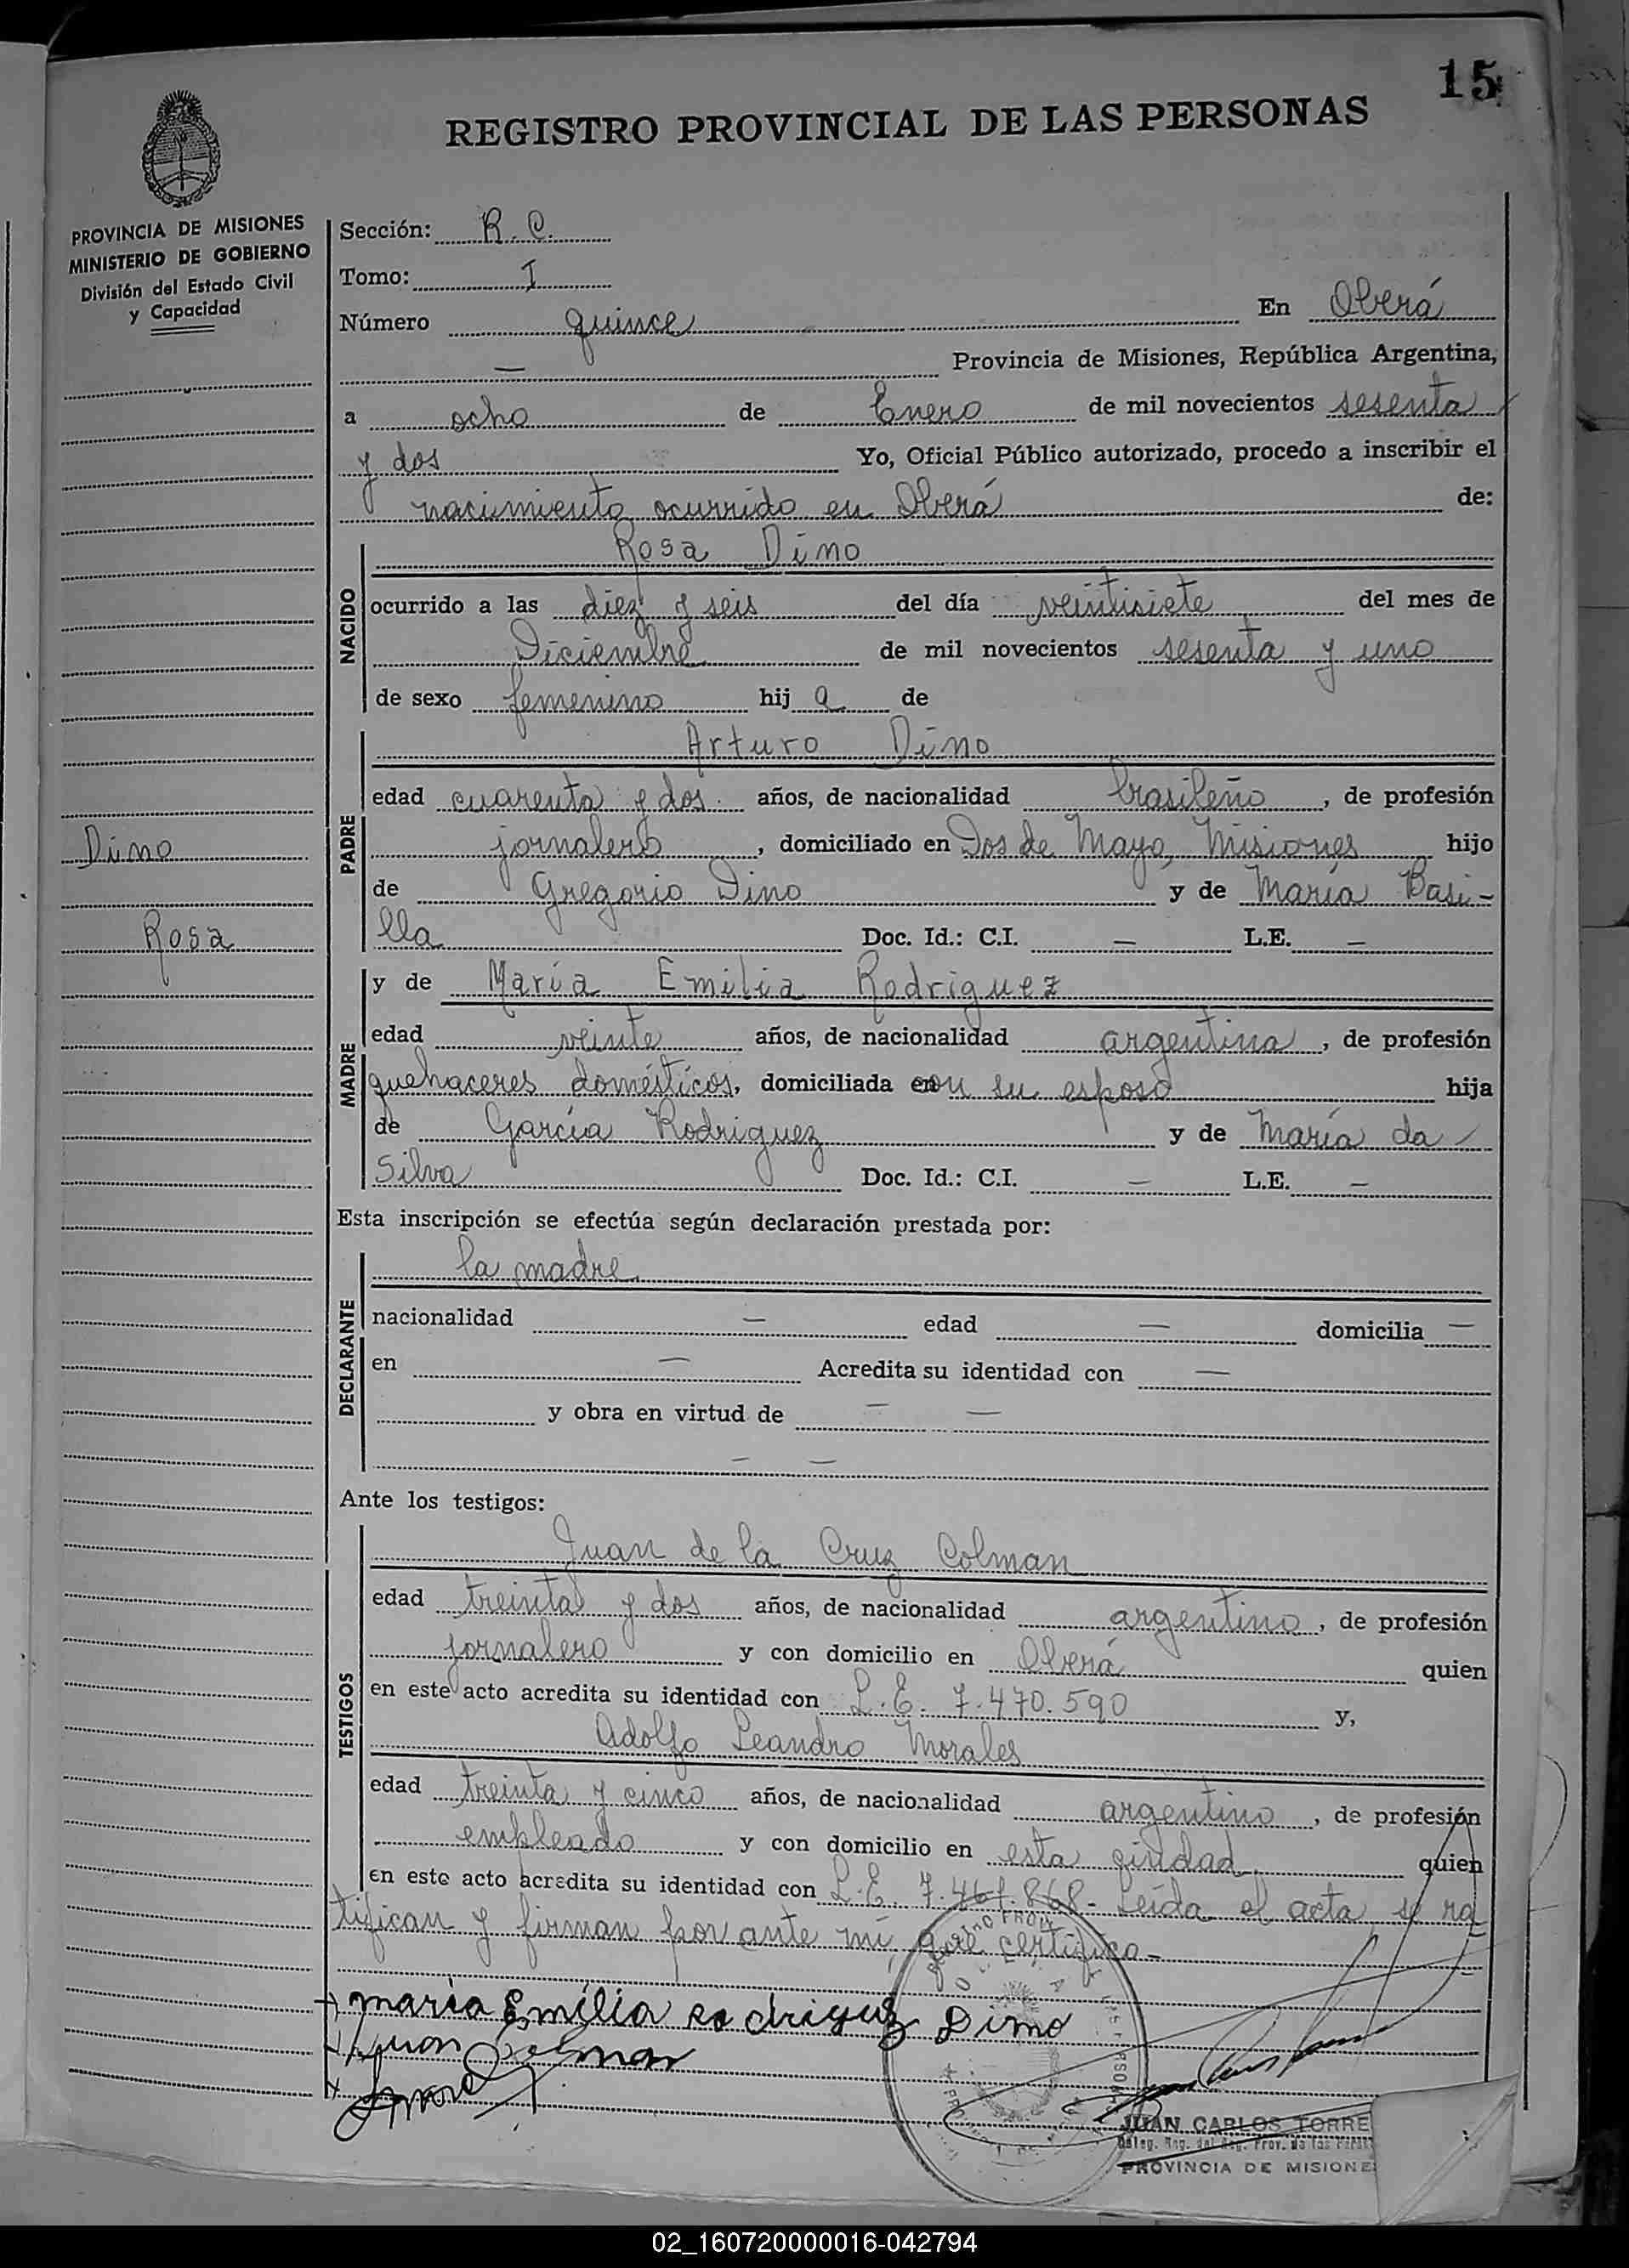 15
REGISTRO PROVINCIAL DE LAS PERSONAS
PROVINCIA DE MISIONES
MINISTERIO DE GOBIERNO
División del Estado Civil
y Capacidad
Dino
Rosa
Sección: R. C.
Tomo: I
Número quince En Oberá
— Provincia de Misiones, República Argentina,
a ocho de Enero de mil novecientos sesenta
y dos Yo, Oficial Público autorizado, procedo a inscribir el
nacimiento ocurrido en Oberá de:
NACIDO
Rosa Dino
ocurrido a las diez y seis del día veintisiete del mes de
Diciembre de mil novecientos sesenta y uno
de sexo femenino hij a de
PADRE
Arturo Dino
edad cuarenta y dos años, de nacionalidad brasileño, de profesión
jornalero, domiciliado en Dos de Mayo, Misiones hijo
de Gregorio Dino y de María Basi-
lla Doc. Id.: C.I. — L.E. —
MADRE
y de María Emilia Rodriguez
edad veinte años, de nacionalidad argentina, de profesión
quehaceres domésticos, domiciliada con su esposo hija
de García Rodriguez y de María da
Silva Doc. Id.: C.I. — L.E. —
Esta inscripción se efectúa según declaración prestada por:
DECLARANTE
la madre
nacionalidad — edad — domicilia —
en — Acredita su identidad con —
y obra en virtud de — —
— —
Ante los testigos:
TESTIGOS
Juan de la Cruz Colman
edad treinta y dos años, de nacionalidad argentino, de profesión
jornalero y con domicilio en Oberá quien
en este acto acredita su identidad con L. E. 7.470.590 y,
Adolfo Leandro Morales
edad treinta y cinco años, de nacionalidad argentino, de profesión
empleado y con domicilio en esta ciudad, quien
en este acto acredita su identidad con L.E. 7.461.868- Leída el acta, se ra
tifican y firman por ante mí, que certifico-
maria Emilia rodriguez Dino
Juan Colman
JUAN CARLOS TORRE
Deleg. Reg. del Reg. Prov. de las
PROVINCIA DE MISIONE
02_160720000016-042794